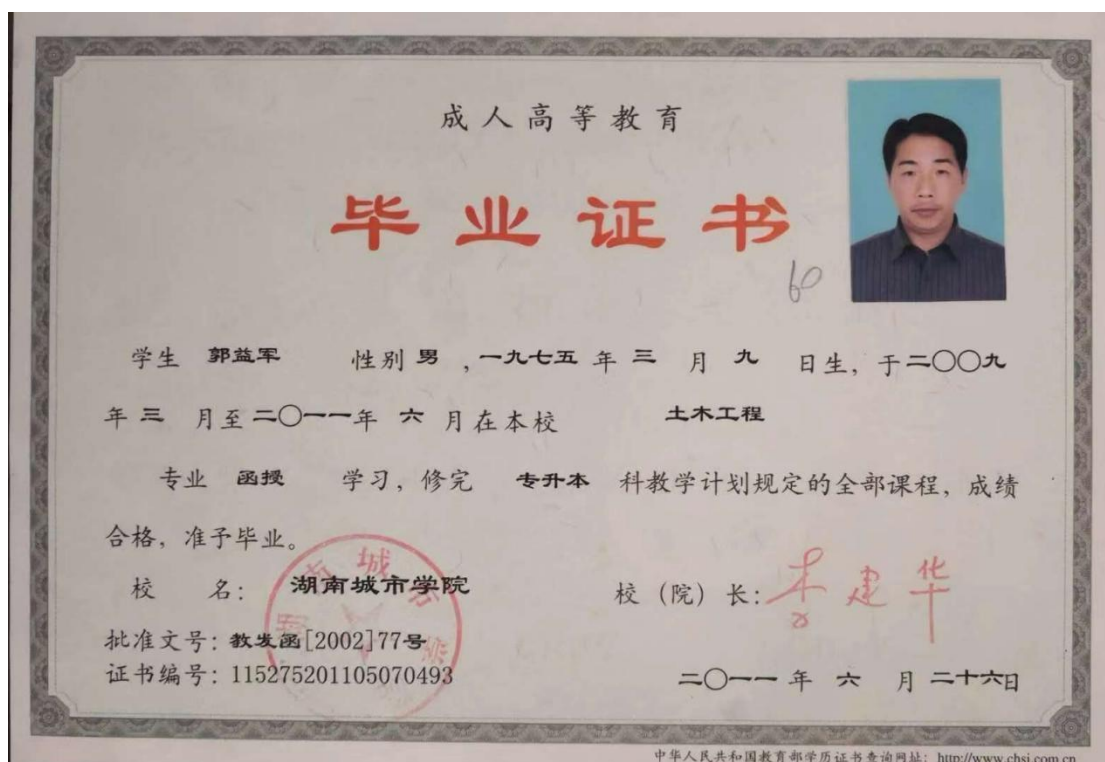 成人高等教育
毕业证书
60
学生 郭益军 性别 男 ,一九七五 年 三 月 九 日生, 于二〇〇九
年 三 月至 二〇一一年 六 月在本校 土木工程
专业 函授 学习, 修完 专升本 科教学计划规定的全部课程, 成绩
合格, 准予毕业。
校 名: 湖南城市学院
校（院）长: 李建华
批准文号: 教发函[2002]77号
证书编号: 115275201105070493
二〇一一 年 六 月 二十六日
中华人民共和国教育部学历证书查询网址: http://www.chsi.com.cn